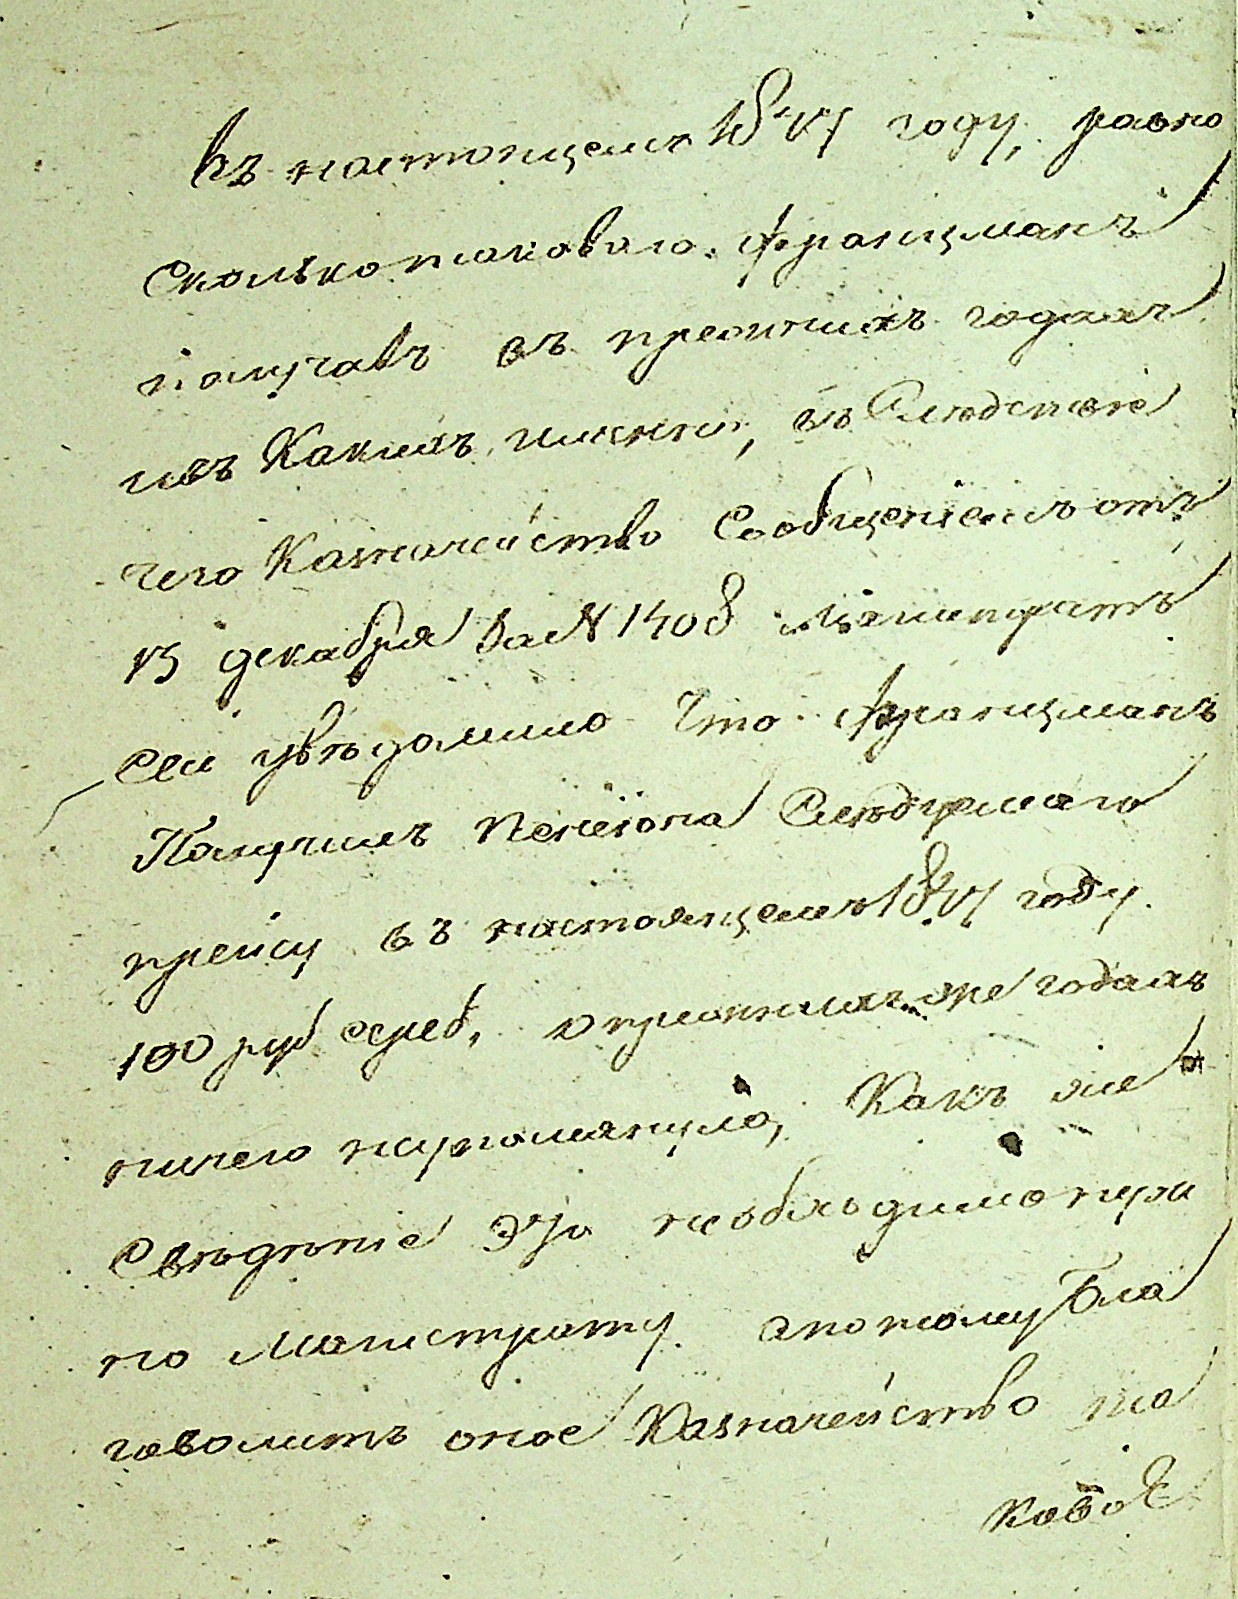 въ настоящемъ 1847 году, равно
сколько таковаго Францманъ
получалъ въ прежнихъ годахъ
изъ какихъ именно, въ следствіе
чего Казначейство сообщеніемъ отъ
15 декабря за № 1408 Магистратъ
сей увѣдомило что Францманъ
Получилъ Пенсіона Следуемаго
въ настоящемъ 1847 году
100 руб сереб, о прежнихъ же годахъ
ничего неупомянуло, Какъ же
Свѣденіе это необходимо нуж
но Магистрату а потому Бла
говолитъ оное Казначейство та
ковое